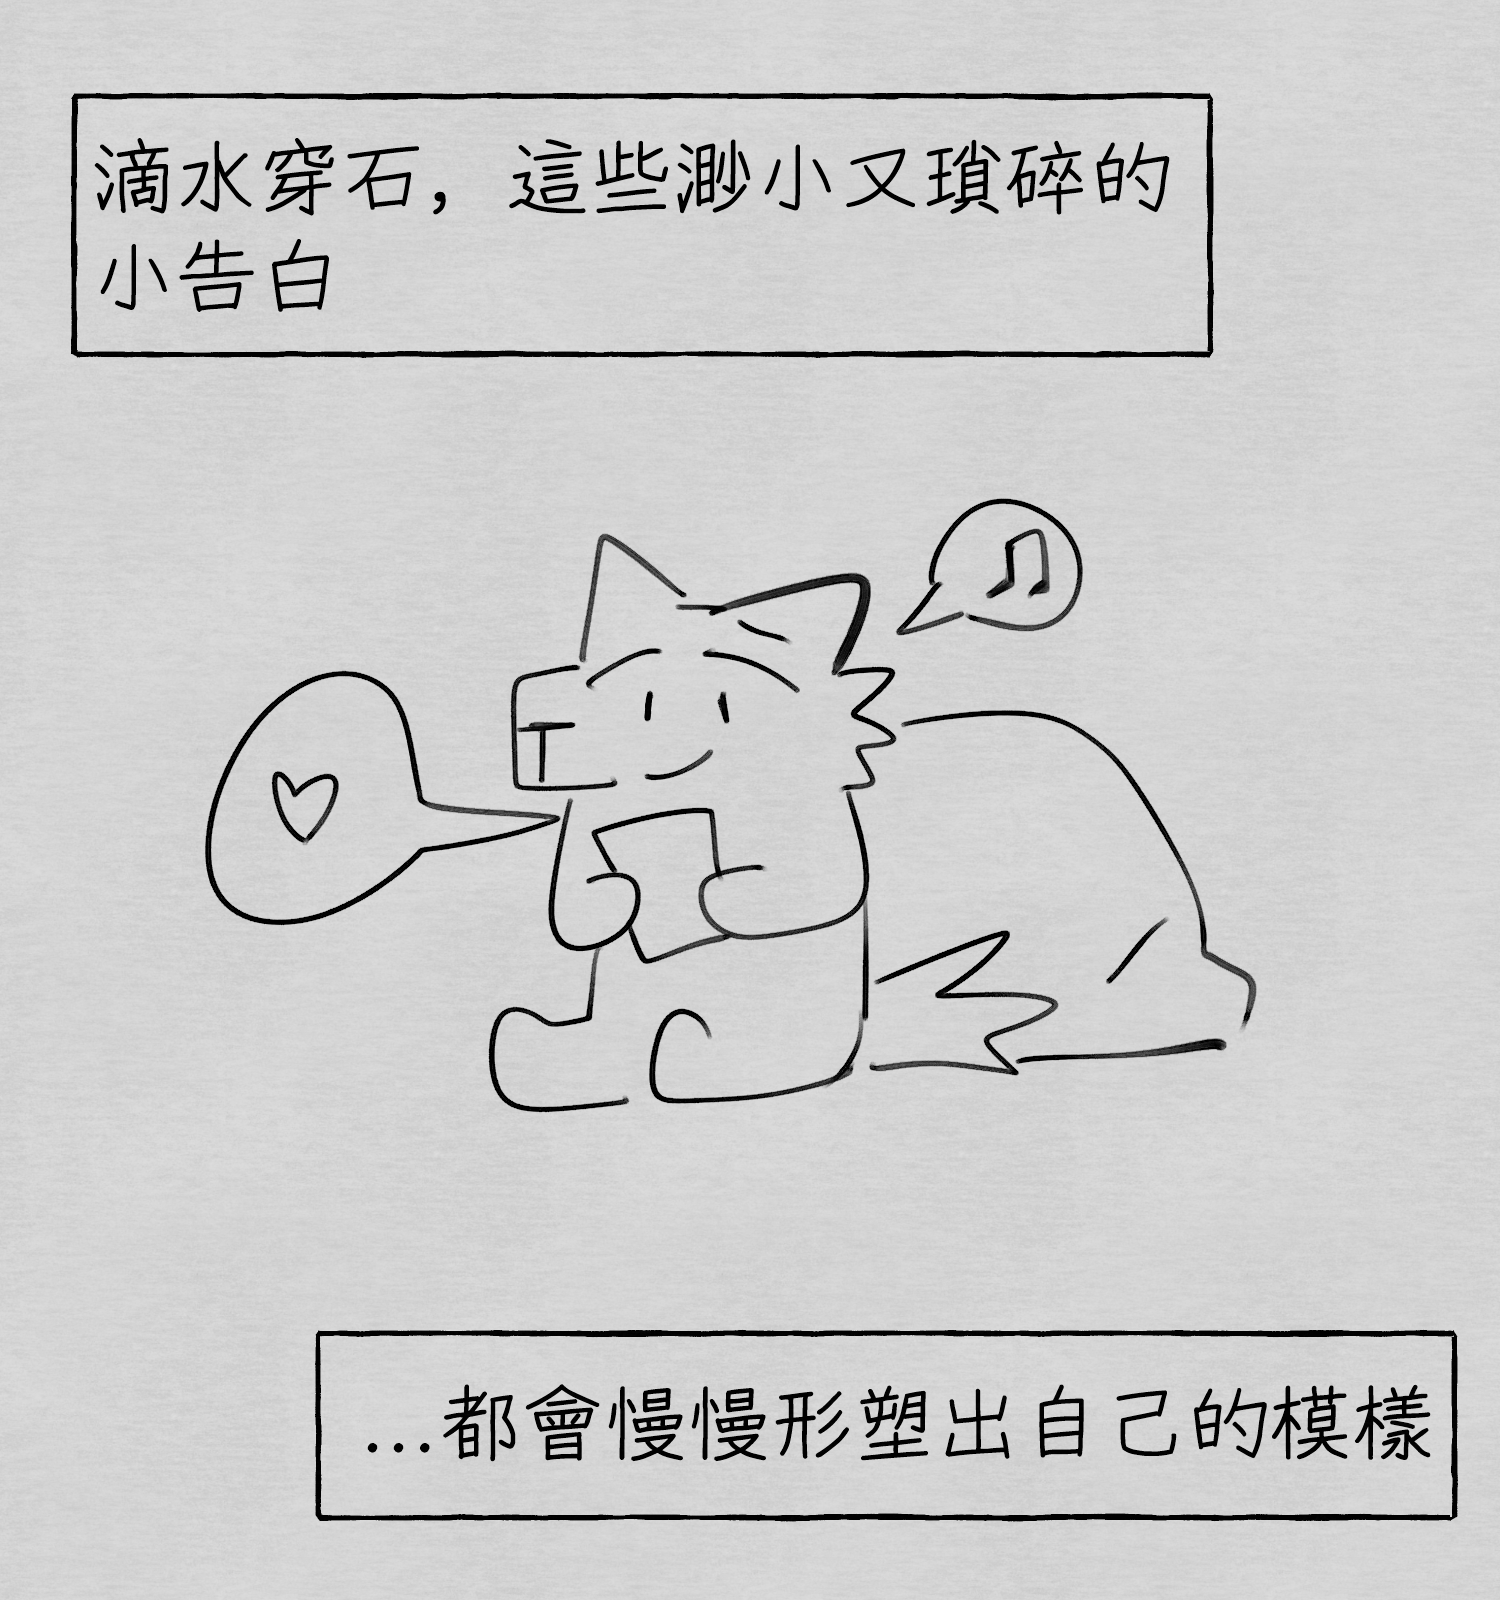 滴水穿石，這些渺小又瑣碎的
小告白
...都會慢慢形塑出自己的模樣